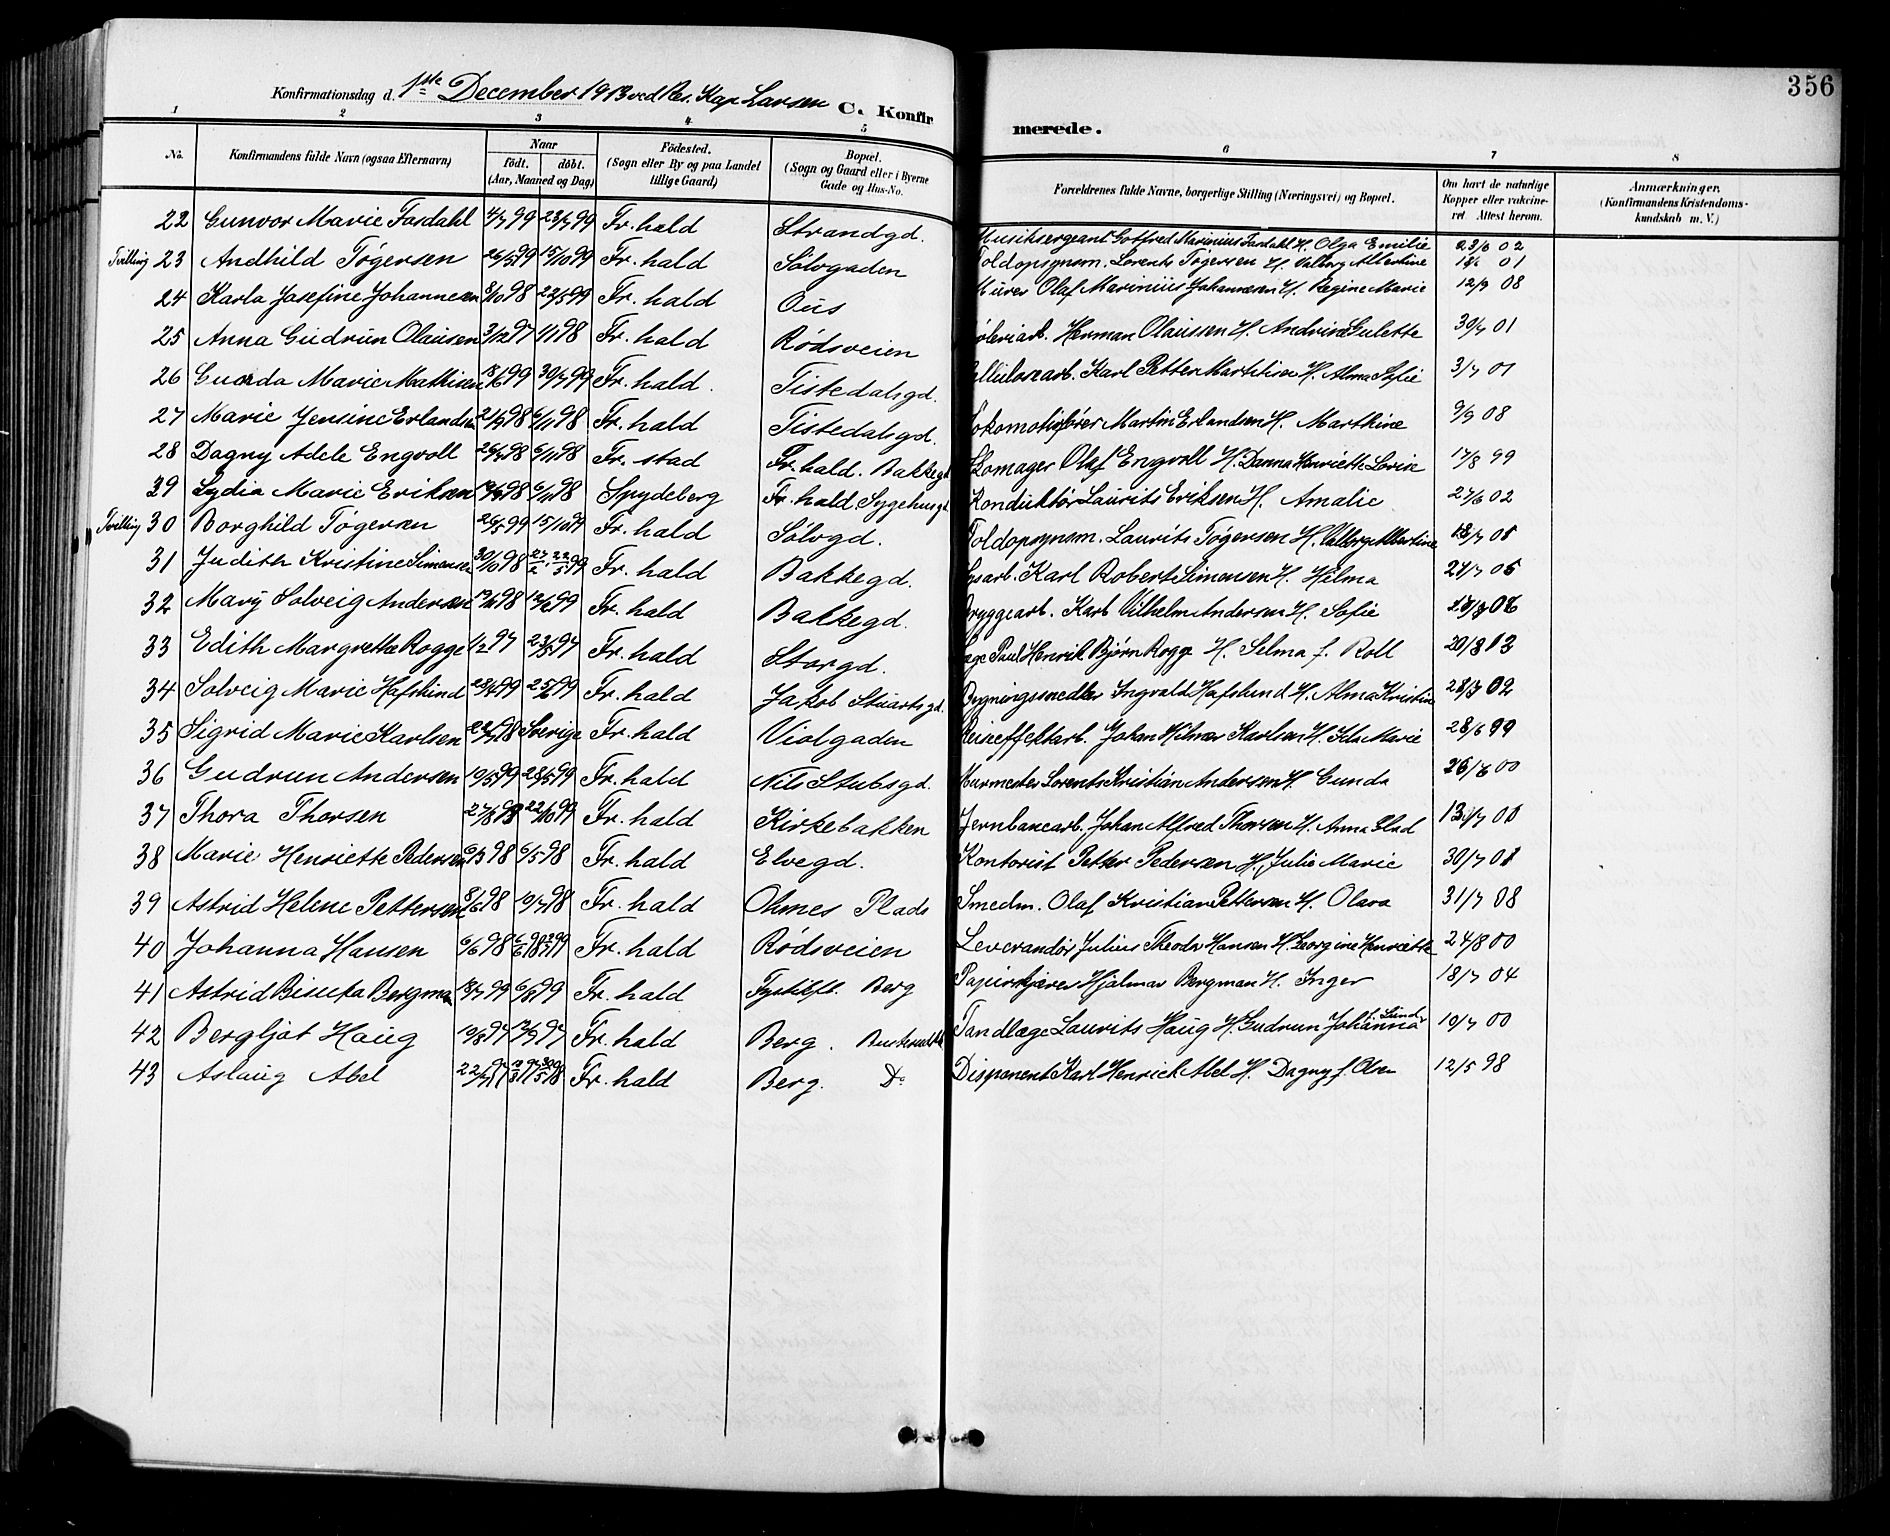 356
Konfirmationsdag d. 1ste December 1913 ved Res. Kap Larsen C. Konfirmerede.
1 2 3 4 5 6 7 8
No. Konfirmandens fulde Navn (ogsaa Efternavn) Naar født. døbt. (Aar, Maaned og Dag) Fødested. (Sogn eller By og paa Landet tillige Gaard) Bopæl. (Sogn og Gaard eller i Byerne Gade og Hus-No. Forældrenes fulde Navne, borgerlige Stilling (Næringsvei) og Bopæl. Om havt de naturlige Kopper eller vakcineret. Attest herom. Anmærkninger. (Konfirmandens Kristendomskundskab m. V.)
22 Gunvor Marie Fosdahl 4/7 99 23/7 99 Fr.hald Strandgd. Musiksergeant Gotfred Marinius Fosdahl H. Olga Emilie 23/6 02
Tvilling 23 Andhild Tøgersen 26/5 99 15/10 99 Fr.hald Sølvgaden Toldopsynsm. Lorents Tøgersen H. Valborg Albertine 01
24 Karla Josefine Johannesen 8/10 98 22/5 99 Fr.hald Ous Murer Olaf Marinius Johannesen H. Regine Marie 12/9 08
25 Anna Gudrun Olausen 3/12 97 1/1 98 Fr.hald Rødsveien Herman Olaussen H. Andrine Gulette 30/7 01
26 Guarda Marie Mathisen 18/6 99 30/7 99 Fr.hald. Tistedalsgd. Cellulosearb. Karl Petter Mathisen H. Alma Sofie 3/7 01
27 Marie Jensine Erlandsen 21/9 98 6/11 98 Fr.hald Tistedalsgd. Lokomotivfører Martin Erlandsen H. Marthine 9/9 08
28 Dagny Adele Engvoll 26/9 98 6/11 98 Fr.stad Fr.hald. Bakkegd. Skomager Olaf Engvoll H. Danna Henriette Lovise 17/8 99
29 Lydia Marie Eriksen 98 6/11 98 Spydeberg Fr.hald Sygehusgd. Konduktør Laurits Eriksen H. Amalie 27/6 02
Tvilling 30 Borghild Tøgersen 26/5 99 15/10 99 Fr.hald Sølvgd. Toldopsynsm. Laurits Tøgersen H. Valborg Albertine
31 Judith Kristine Simensen 30/10 98 27/2 22/5 99 Fr.hald Bakkegd. Karl Robert Simensen H. Hilma 27/7 05
32 Mary Solveig Andersen 98 12/2 99 Fr.hald Bakkegd. Bryggearb. Karl Vilhelm Andersen H. Sofie
33 Edith Margrethe Rogge 1/2 97 23/5 97 Fr.hald Storgd. Læge Paul Henrik Bjørn Rogge H. Selma f. Roll 20/8 13
34 Solveig Marie Hafslund 29/4 99 25/6 99 Fr.hald Jakob Stuartsgd. Bygningssnedker Ingvald Hafslund H. Alma Kristine 28/7 02
35 Sigrid Marie Karlsen 98 Sverige Fr.hald Violgaden Reiseffektarb. Johan Hilmar Karlsen H. Ida Marie 28/6 99
36 Gudrun Andersen 19/3 99 28/5 99 Fr.hald Nils Stubsgd. Murmester Lorents Kristian Andersen H. Gunda 26/6 00
37 Thora Thorsen 27/8 98 22/10 99 Fr.hald Kirkebakken Jernbanearb. Johan Alfred Thorsen H. Anna Elud 13/7 01
38 Marie Henriette Pedersen 6/3 98 6/5 98 Fr.hald Elvegd. Kontorist Petter Pedersen H. Julie Marie 30/7 01
39 Astrid Helene Pettersen 8/6 98 10/7 98 Fr.hald Ohmes Plads Smedm. Olaf Kristian Pettersen H. Olava 31/7 08
40 Johanna Hansen 6/6 98 6/6 98 Fr.hald Rødsveien Leverandør Julius Theodor Hansen H. Georgine Henriette 24/8 00
41 Astrid Bisuka Bergman 18/7 99 6/8 99 Fr.hald Berg Papirskjærer Hjalmar Bergman H. Inger 18/7 04
42 Bergljot Haug 10/3 97 17/6 97 Fr.hald Berg. Tandlæge Laurits Haug H. Gudrun Johanna f. Lund 10/7 00
43 Aslaug Abel Fr.hald Berg. Do Disponent Karl Henrick Abel H. Dagny f. Olsen 12/5 98